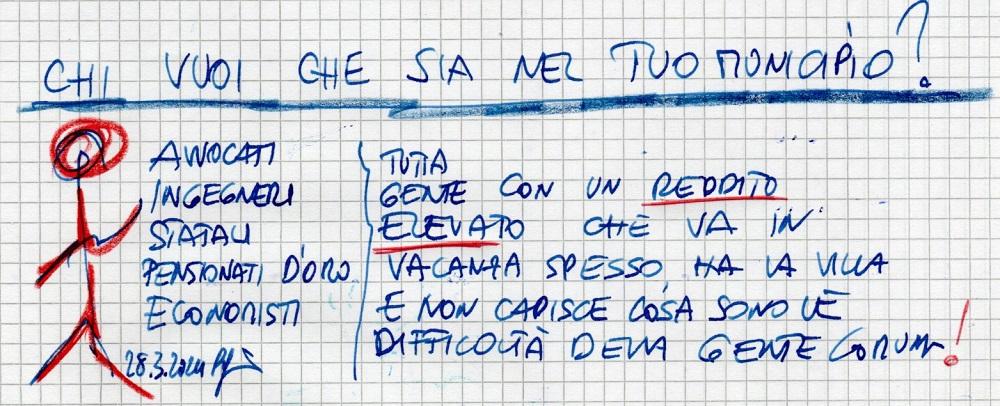 CHI VUOI CHE SIA NEL TUO MUNICIPIO?
AVVOCATI
INGEGNERI
STATALI
PENSIONATI D'ORO
ECONOMISTI
28.3.2024
TUTTA
GENTE CON UN REDDITO
ELEVATO CHE VA IN
VACANZA SPESSO, HA LA VILLA
E NON CAPISCE COSA SONO LE
DIFFICOLTÀ DELLA GENTE COMUNE!